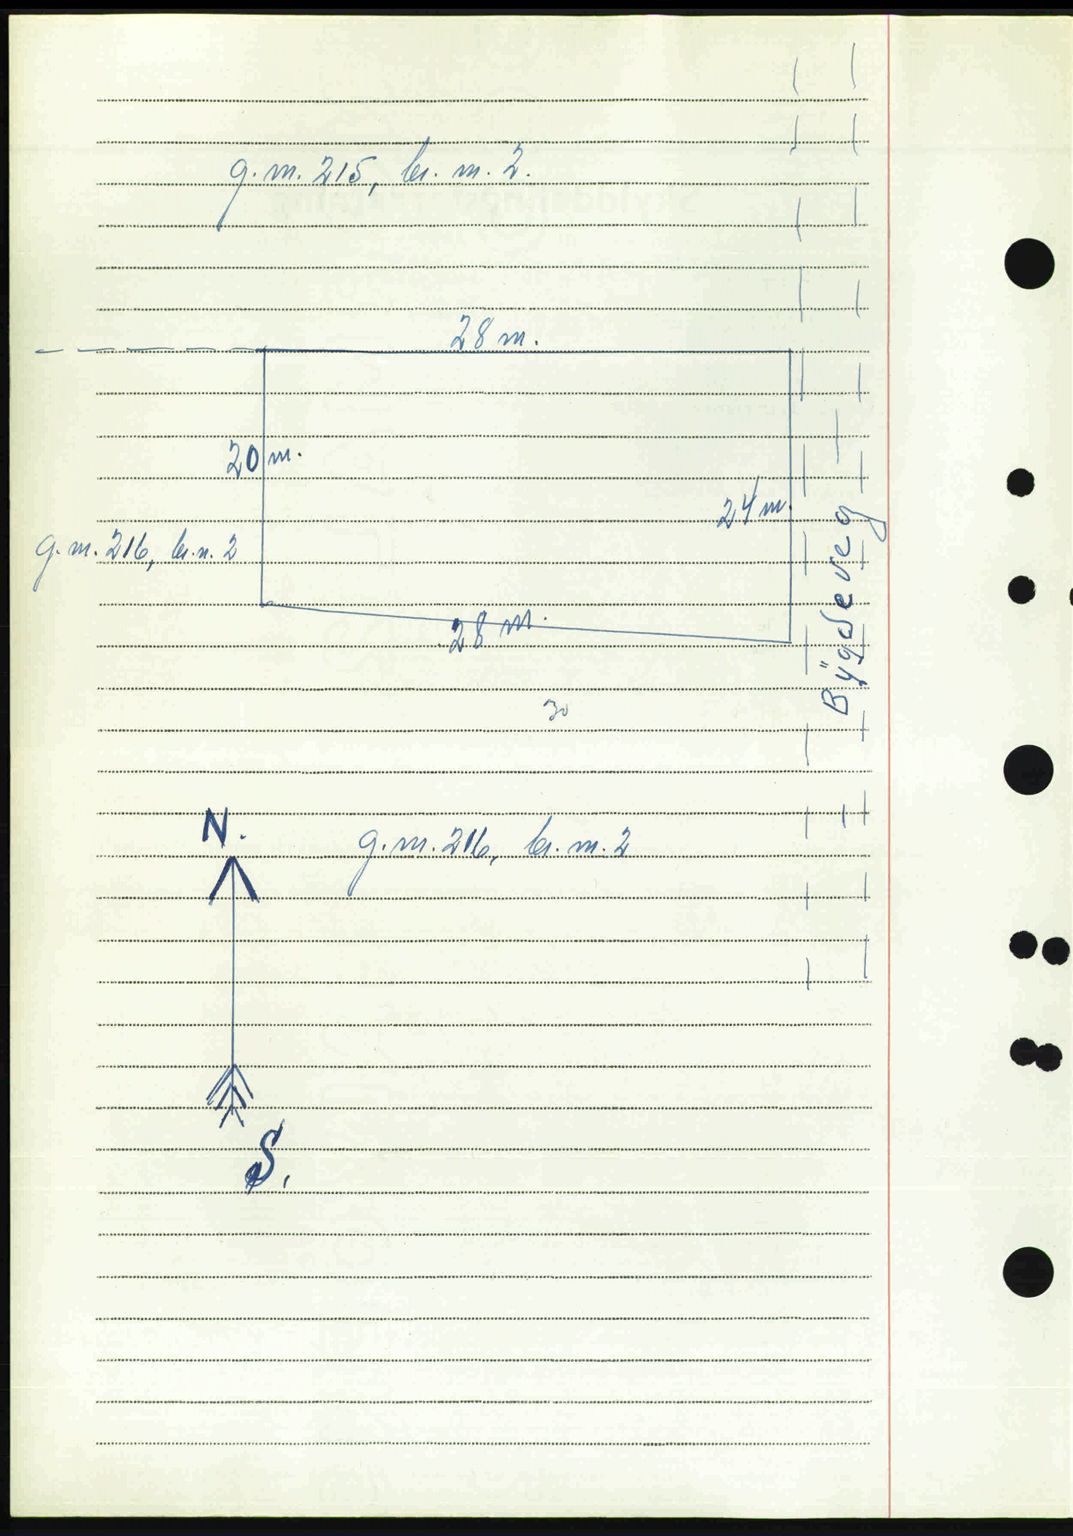 g. nr. 215, br. nr. 2.
28 m.
20 m.
24 m.
g. nr. 216, br. n. 2
28 m.
Bygdeveg
30
N.
g. nr. 216, br. nr. 2
S.